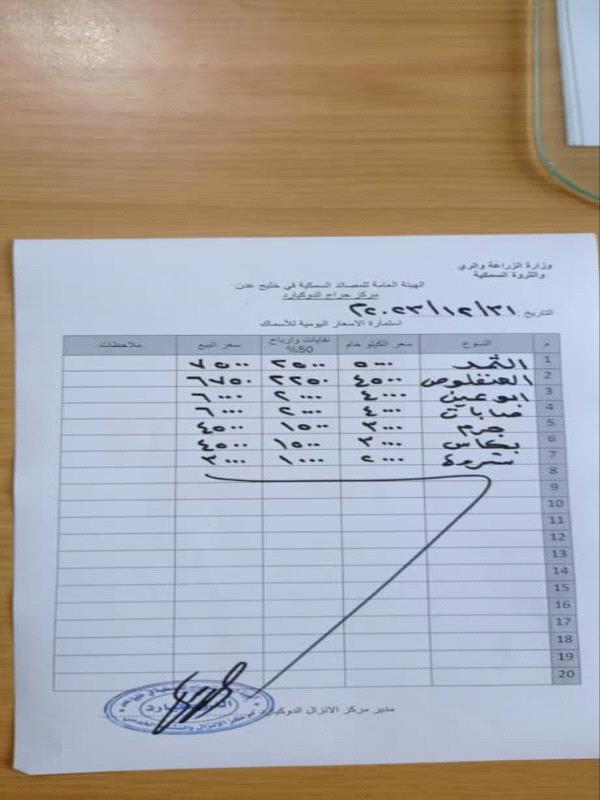 وزارة الزراعة والري
والثروة السمكية
الهيئة العامة للمصائد السمكية في خليج عدن
مركز حراج الدوكيارد
التاريخ ٢٠٢٣/١٢/٣١
استمارة الاسعار اليومية للأسماك
م النوع سعر الكيلو خام نفايات وارباح 50% سعر البيع ملاحظات
1 الثمد ٥٠٠٠ ٢٥٠٠ ٧٥٠٠
2 العنفلوص ٤٥٠٠ ٢٢٥٠ ٦٧٥٠
3 ابو عين ٤٠٠٠ ٢٠٠٠ ٦٠٠٠
4 ٤٠٠٠ ٢٠٠٠ ٦٠٠٠
5 جرم ٣٠٠٠ ١٥٠٠ ٤٥٠٠
6 ٣٠٠٠ ١٥٠٠ ٤٥٠٠
7 شروة ٢٠٠٠ ١٠٠٠ ٣٠٠٠
8
9
10
11
12
13
14
15
16
17
18
19
20
مدير مركز الانزال الدوكيارد